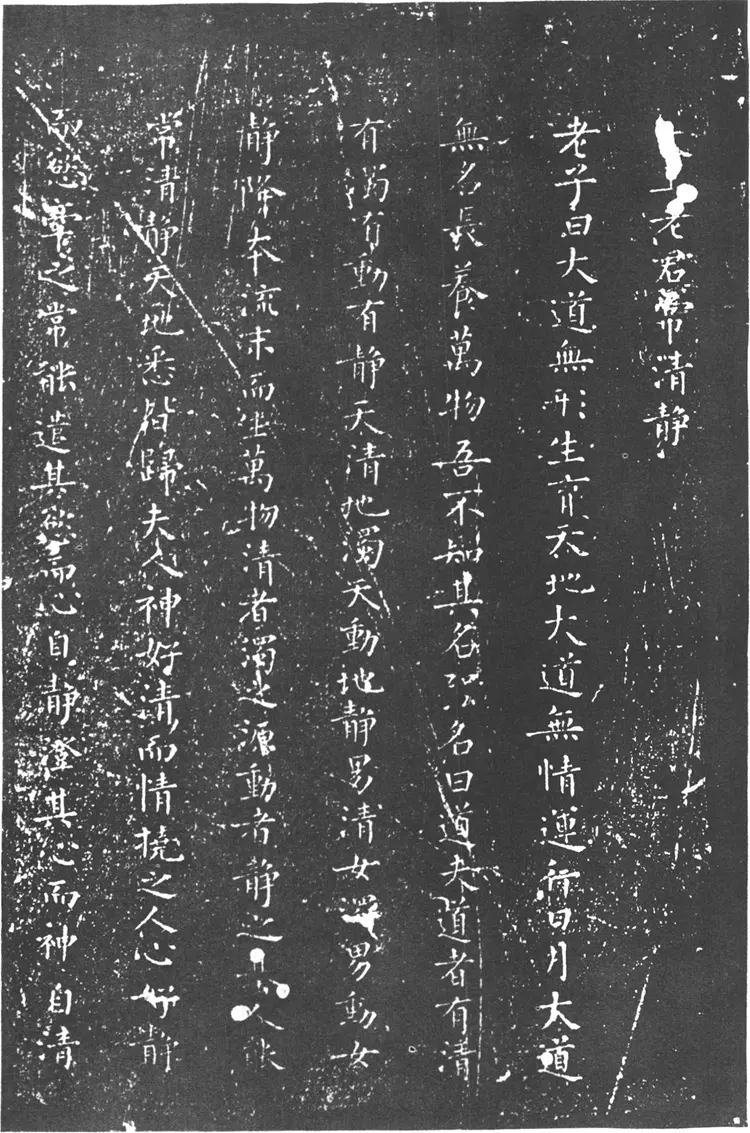 上老君常清静
老子曰大道無形生育天地大道無情運行日月大道
無名長養萬物吾不知其名强名曰道夫道者有清
有濁有動有静天清地濁天動地静男清女濁男動女
静降本流末而生萬物清者濁之源動者静之人能
常清静天地悉皆歸夫人神好清而情撓之人心好静
而慾牽之常能遣其慾而心自静澄其心而神自清